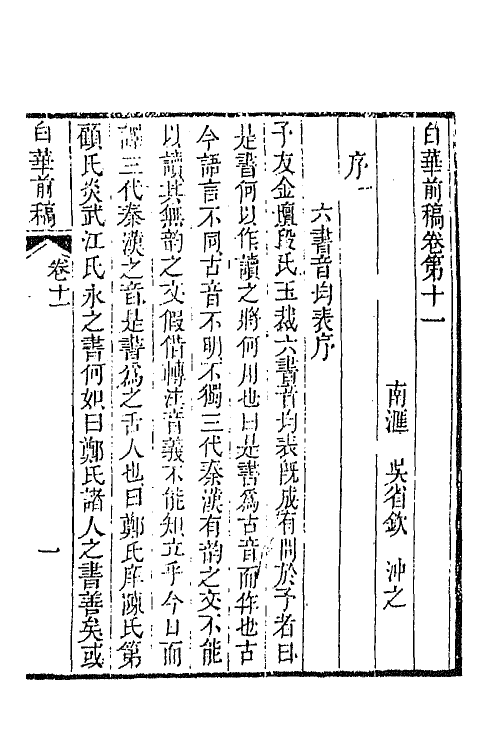 白華前稿卷第十一
南滙　吳省欽　沖之
序一
六書音均表序
予友金壇段氏玉裁六書音均表旣成有問於予者曰
是書何以作讀之將何用也曰是書爲古音而作也古
今語言不同古音不明不獨三代秦漢有韵之文不能
以讀其無韵之文假借轉注音義不能知立乎今日而
譯三代秦漢之音是書爲之舌人也曰鄭氏庠陳氏第
顧氏炎武江氏永之書何如曰鄭氏諸人之書善矣或
白華前稿　卷十一　一